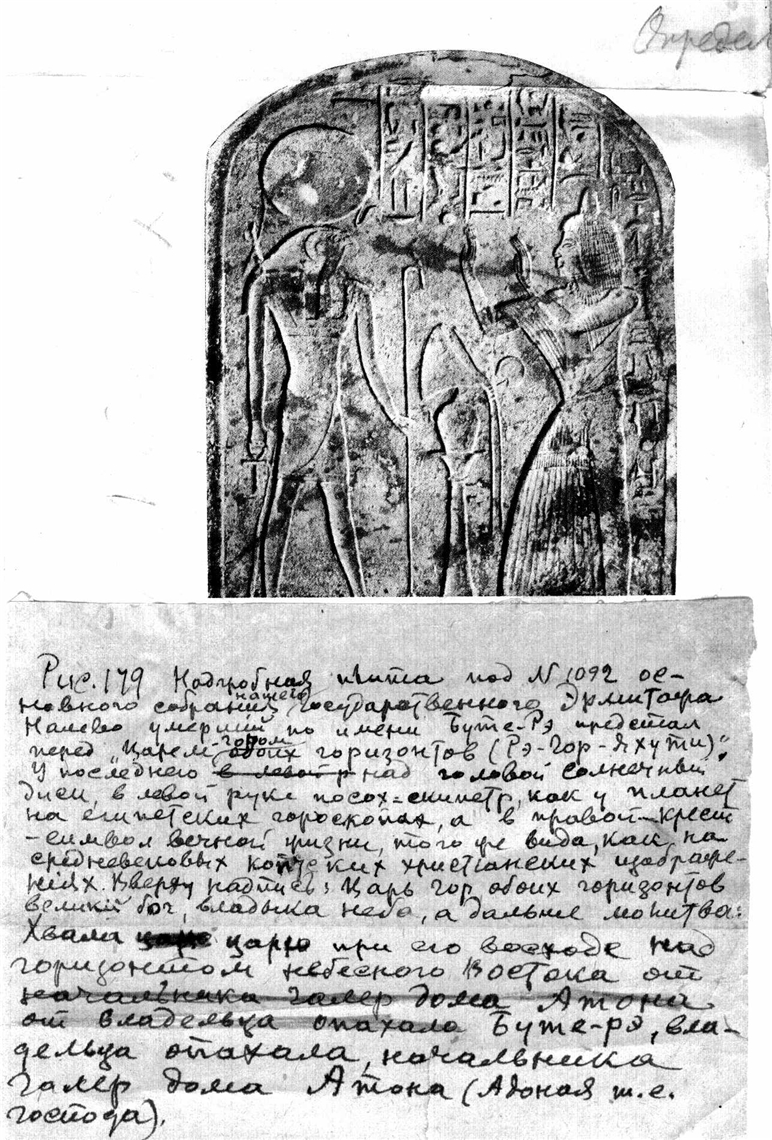 Определ
Рис. 179 Надгробная плита под N 1092 ос-
новного собрания нашего Государственного Эрмитажа
Налево умерший по имени Буте-Рэ предстал
перед "Царем-гором обоих горизонтов (Рэ-Гор-Яхути)".
У последнего в левой р над головой солнечный
диск, в левой руке посох=скипетр, как у планет
на египетских гороскопах, а в правой—крест
-символ вечной жизни, того же вида, как на
средневековых коптских христианских изображе-
ниях. Вверху надпись: Царь гор обоих горизонтов
великий бог, владыка неба, а дальше молитва:
Хвала царю при его восходе над
горизонтом небесного Востока от
начальника галер дома Атона
от владельца опахала Буте-рэ, вла-
дельца опахала, начальника
галер дома Атона (Адоная т.е.
господа).